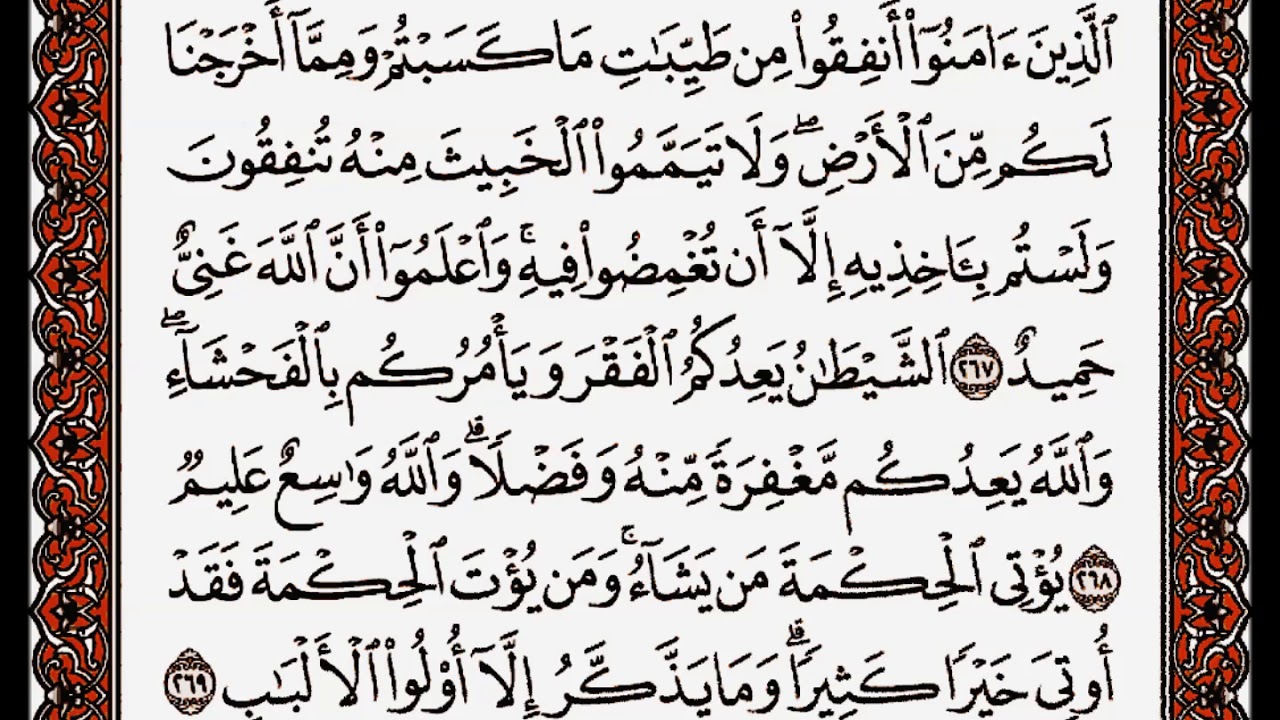 ٱلَّذِينَ ءَامَنُوٓا۟ أَنفِقُوا۟ مِن طَيِّبَـٰتِ مَا كَسَبْتُمْ وَمِمَّآ أَخْرَجْنَا
لَكُم مِّنَ ٱلْأَرْضِ ۖ وَلَا تَيَمَّمُوا۟ ٱلْخَبِيثَ مِنْهُ تُنفِقُونَ
وَلَسْتُم بِـَٔاخِذِيهِ إِلَّآ أَن تُغْمِضُوا۟ فِيهِ ۚ وَٱعْلَمُوٓا۟ أَنَّ ٱللَّهَ غَنِىٌّ
حَمِيدٌ ٢٦٧ ٱلشَّيْطَـٰنُ يَعِدُكُمُ ٱلْفَقْرَ وَيَأْمُرُكُم بِٱلْفَحْشَآءِ ۖ
وَٱللَّهُ يَعِدُكُم مَّغْفِرَةً مِّنْهُ وَفَضْلًا ۗ وَٱللَّهُ وَٰسِعٌ عَلِيمٌ
٢٦٨ يُؤْتِى ٱلْحِكْمَةَ مَن يَشَآءُ ۚ وَمَن يُؤْتَ ٱلْحِكْمَةَ فَقَدْ
أُوتِىَ خَيْرًا كَثِيرًا ۗ وَمَا يَذَّكَّرُ إِلَّآ أُو۟لُوا۟ ٱلْأَلْبَـٰبِ ٢٦٩